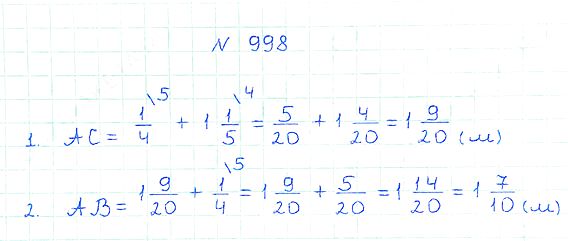 N 998
1. AC = 1/4 \5 + 1 1/5 \4 = 5/20 + 1 4/20 = 1 9/20 (м)
2. AB = 1 9/20 + 1/4 \5 = 1 9/20 + 5/20 = 1 14/20 = 1 7/10 (м)